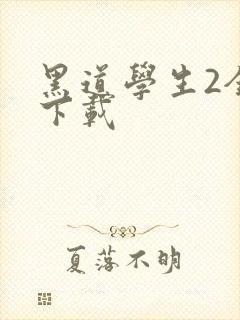 黑道學生2全
下載
夏落不明